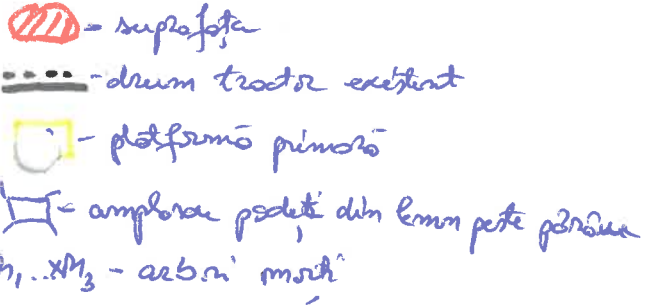 - suprafața
- drum tractor existent
- platformă primară
- amplasare podeți din lemn peste pârâu
...XM3 - arbori morți